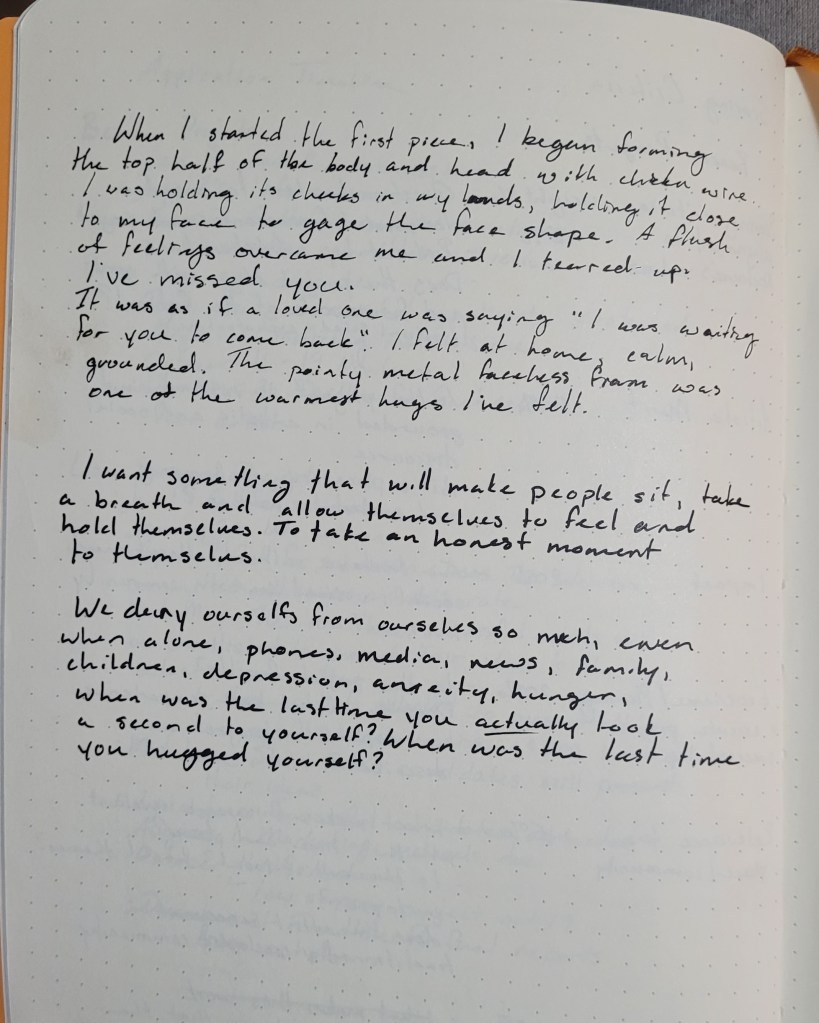 When I started the first piece, I began forming
the top half of the body and head with chicken wire.
I was holding its cheeks in my hands, holding it close
to my face to gage the face shape. A flush
of feelings overcame me and I teared up.
I've missed you.
It was as if a loved one was saying "I was waiting
for you to come back". I felt at home, calm,
grounded. The pointy metal faceless fram was
one of the warmest hugs I've felt.
I want something that will make people sit, take
a breath and allow themselves to feel and
hold themselves. To take an honest moment
to themselves.
We deny ourselfs from ourselves so much, even
when alone, phones, media, news, family,
children, depression, anxeity, hunger,
when was the last time you actually took
a second to yourself? When was the last time
you hugged yourself?